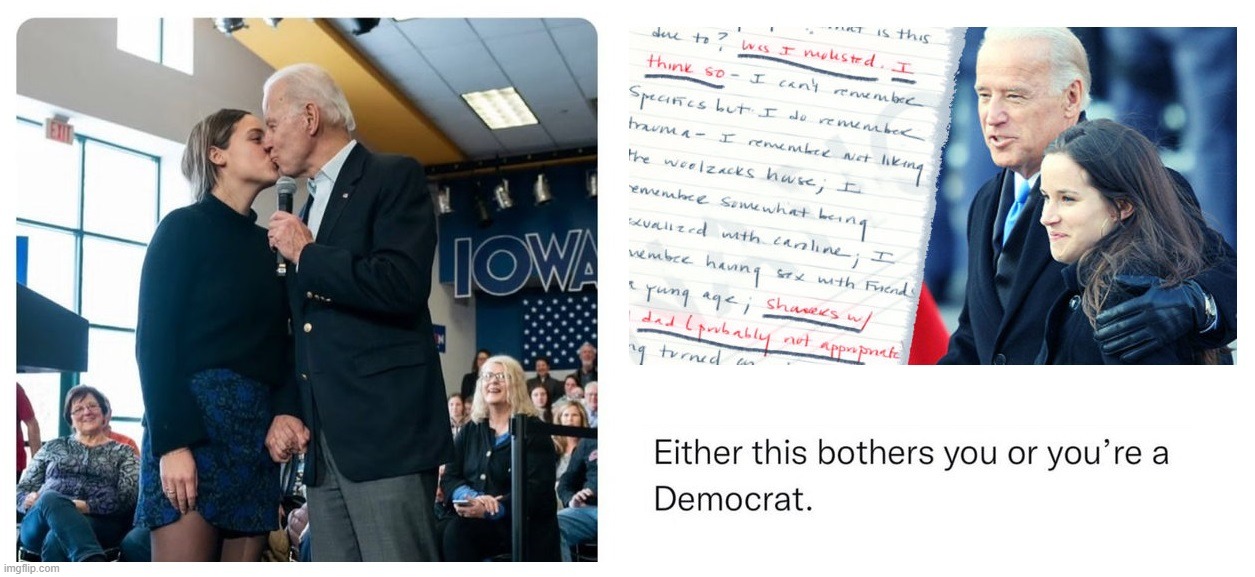 EXIT
IOWA
is this
due to? Was I molested. I
think so - I can't remember
Specifics but I do remember
trauma - I remember not liking
the woolzacks house; I
emember somewhat being
exualized with caroline; I
member having sex with Friends
yung age; showers w/
dad (probably not appropriate
ng turned
Either this bothers you or you're a
Democrat.
imgflip.com